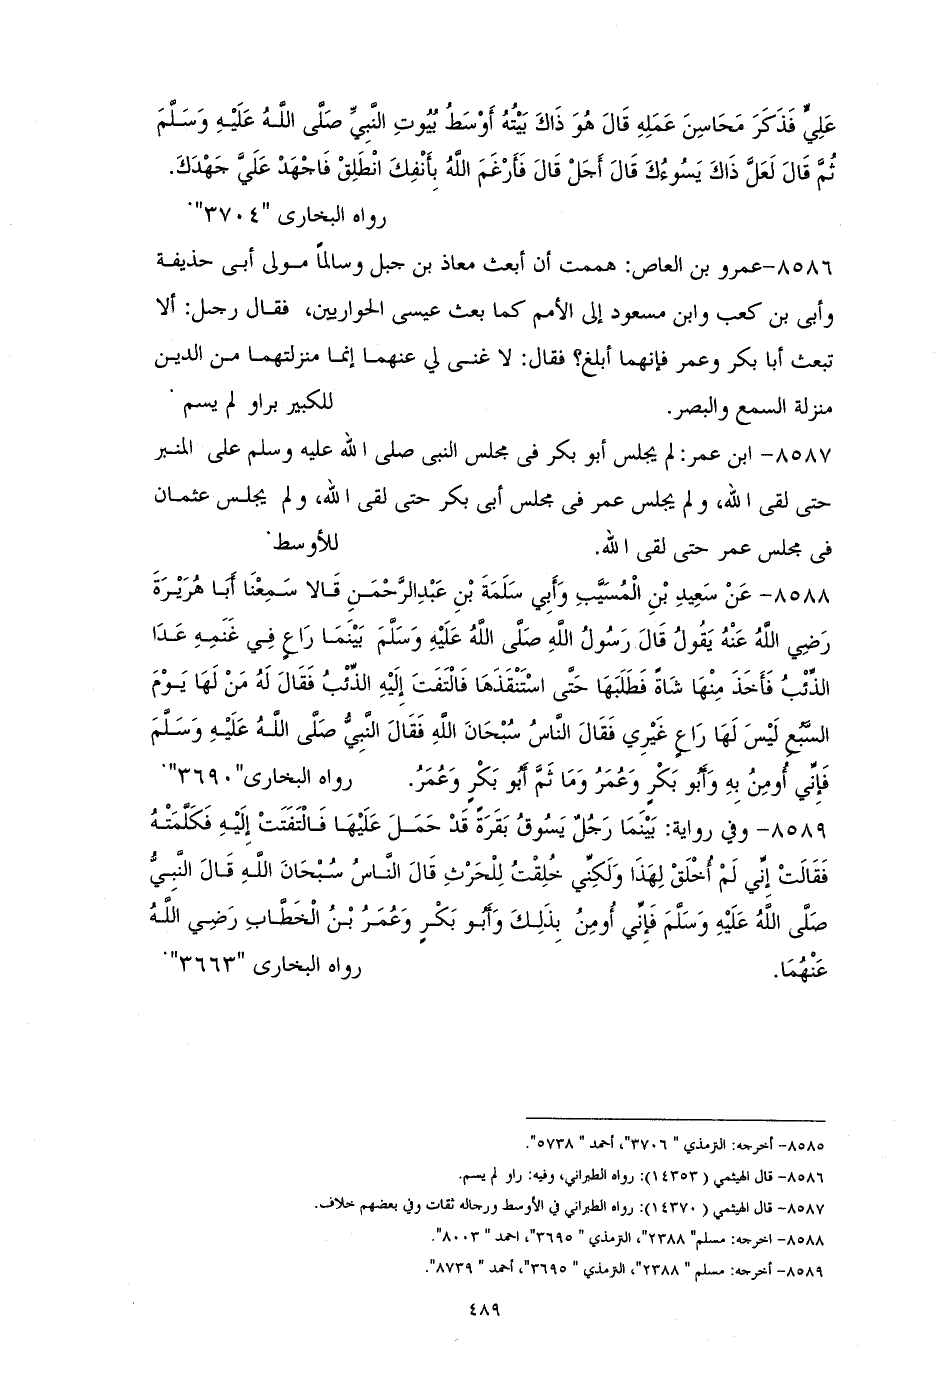 عَلِيٍّ فَذَكَرَ مَحَاسِنَ عَمَلِهِ قَالَ هُوَ ذَاكَ بَيْتُهُ أَوْسَطُ بُيُوتِ النَّبِيِّ صَلَّى اللَّهُ عَلَيْهِ وَسَلَّمَ
ثُمَّ قَالَ لَعَلَّ ذَاكَ يَسُوءُكَ قَالَ أَجَلْ قَالَ فَأَرْغَمَ اللَّهُ بِأَنْفِكَ انْطَلِقْ فَاجْهَدْ عَلَيَّ جَهْدَكَ.
رواه البخارى "٣٧٠٤".
٨٥٨٦-عمرو بن العاص: هممت أن أبعث معاذ بن جبل وسالماً مولى أبى حذيفة
وأبى بن كعب وابن مسعود إلى الأمم كما بعث عيسى الحواريين، فقال رجل: ألا
تبعث أبا بكر وعمر فإنهما أبلغ؟ فقال: لا غنى لي عنهما إنما منزلتهما من الدين
منزلة السمع والبصر. للكبير براو لم يسم .
٨٥٨٧- ابن عمر: لم يجلس أبو بكر فى مجلس النبى صلى الله عليه وسلم على المنبر
حتى لقى الله، ولم يجلس عمر فى مجلس أبى بكر حتى لقى الله، ولم يجلس عثمان
فى مجلس عمر حتى لقى الله. للأوسط.
٨٥٨٨- عَنْ سَعِيدِ بْنِ الْمُسَيَّبِ وَأَبِي سَلَمَةَ بْنِ عَبْدِالرَّحْمَنِ قَالا سَمِعْنَا أَبَا هُرَيْرَةَ
رَضِي اللَّهُ عَنْهُ يَقُولُ قَالَ رَسُولُ اللَّهِ صَلَّى اللَّهُ عَلَيْهِ وَسَلَّمَ بَيْنَمَا رَاعٍ فِي غَنَمِهِ عَدَا
الذِّئْبُ فَأَخَذَ مِنْهَا شَاةً فَطَلَبَهَا حَتَّى اسْتَنْقَذَهَا فَالْتَفَتَ إِلَيْهِ الذِّئْبُ فَقَالَ لَهُ مَنْ لَهَا يَوْمَ
السَّبُعِ لَيْسَ لَهَا رَاعٍ غَيْرِي فَقَالَ النَّاسُ سُبْحَانَ اللَّهِ فَقَالَ النَّبِيُّ صَلَّى اللَّهُ عَلَيْهِ وَسَلَّمَ
فَإِنِّي أُومِنُ بِهِ وَأَبُو بَكْرٍ وَعُمَرُ وَمَا ثَمَّ أَبُو بَكْرٍ وَعُمَرُ. رواه البخارى"٣٦٩٠".
٨٥٨٩- وفي رواية: بَيْنَمَا رَجُلٌ يَسُوقُ بَقَرَةً قَدْ حَمَلَ عَلَيْهَا فَالْتَفَتَتْ إِلَيْهِ فَكَلَّمَتْهُ
فَقَالَتْ إِنِّي لَمْ أُخْلَقْ لِهَذَا وَلَكِنِّي خُلِقْتُ لِلْحَرْثِ قَالَ النَّاسُ سُبْحَانَ اللَّهِ قَالَ النَّبِيُّ
صَلَّى اللَّهُ عَلَيْهِ وَسَلَّمَ فَإِنِّي أُومِنُ بِذَلِكَ وَأَبُو بَكْرٍ وَعُمَرُ بْنُ الْخَطَّابِ رَضِي اللَّهُ
عَنْهُمَا. رواه البخارى "٣٦٦٣".
٨٥٨٥- أخرجه: الترمذي " ٣٧٠٦"، أحمد " ٥٧٣٨".
٨٥٨٦- قال الهيثمي ( ١٤٣٥٣): رواه الطبراني، وفيه: راو لم يسم.
٨٥٨٧- قال الهيثمي ( ١٤٣٧٠): رواه الطبراني في الأوسط ورجاله ثقات وفي بعضهم خلاف.
٨٥٨٨- اخرجه: مسلم" ٢٣٨٨"، الترمذي " ٣٦٩٥"، احمد " ٨٠٠٣".
٨٥٨٩- أخرجه: مسلم " ٢٣٨٨"، الترمذي " ٣٦٩٥"، أحمد " ٨٧٣٩".
٤٨٩